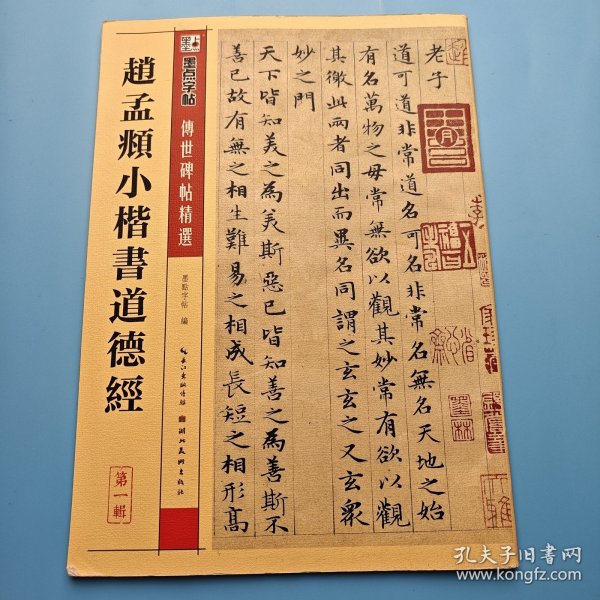 趙孟頫小楷書道德經
第一輯
墨点字帖
傳世碑帖精選
墨點字帖 編
長江出版傳媒
湖北美術出版社
老子
道可道非常道名可名非常名無名天地之始
有名萬物之母常無欲以觀其妙常有欲以觀
其徼此兩者同出而異名同謂之玄玄之又玄衆
妙之門
天下皆知美之為美斯惡已皆知善之為善斯不
善已故有無之相生難易之相成長短之相形高
墨林
孔夫子旧书网
www.kongfz.com